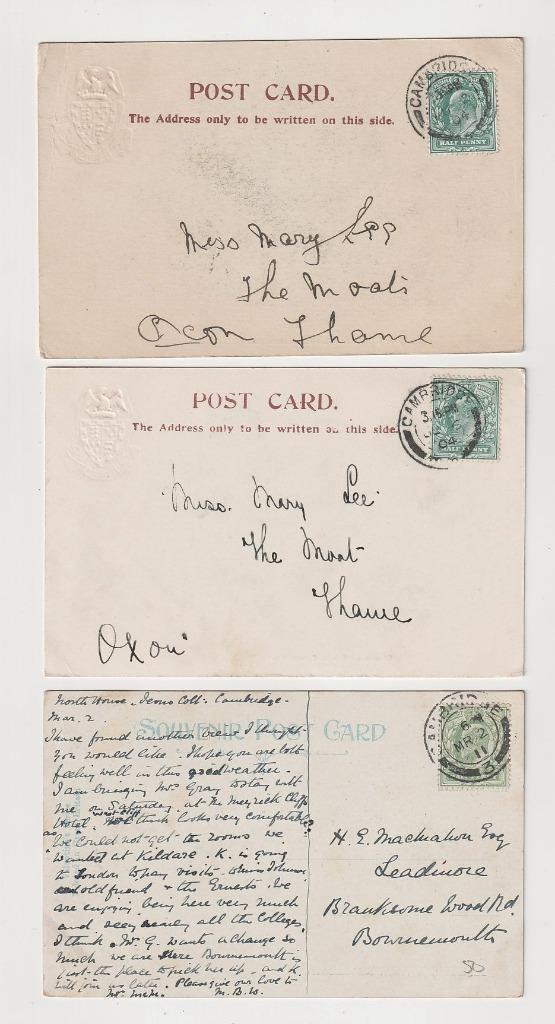 POST CARD.
The Address only to be written on this side.
CAMBRIDGE
04
HALF PENNY
Miss Mary Lee
The Moat
Oxon Thame
POST CARD.
The Address only to be written on this side.
CAMBRIDGE
3.15 PM
04
HALF PENNY
Miss. Mary Lee
The Moat
Thame
Oxon
North House. Jesus Coll. Cambridge.
Mar. 2.
SOUVENIR POST CARD
I have found another view I thought
you would like. I hope you are both
feeling well in this good weather.
I am bringing Mrs Gray to stay with
me on Saturday. at the Meyrick Cliffs
Hotel. West Cliff think looks very comfortable?
We could not get the rooms we
wanted at Kildare. K. is going
to London to pay visits to Miss Johnson
old friend & the Ernests. We
are enjoying being here very much
and seey nearly all the Colleges
I think Mrs G. wants a change so
much we are sure Bournemouth is
just the place to pick her up. and K.
will join us later. Please give our love to
M.B.W.
CAMBRIDGE
6
MR 2
11
S
H. E. MacMahon Esq
Leadinore
Branksome Wood Rd.
Bournemouth
50